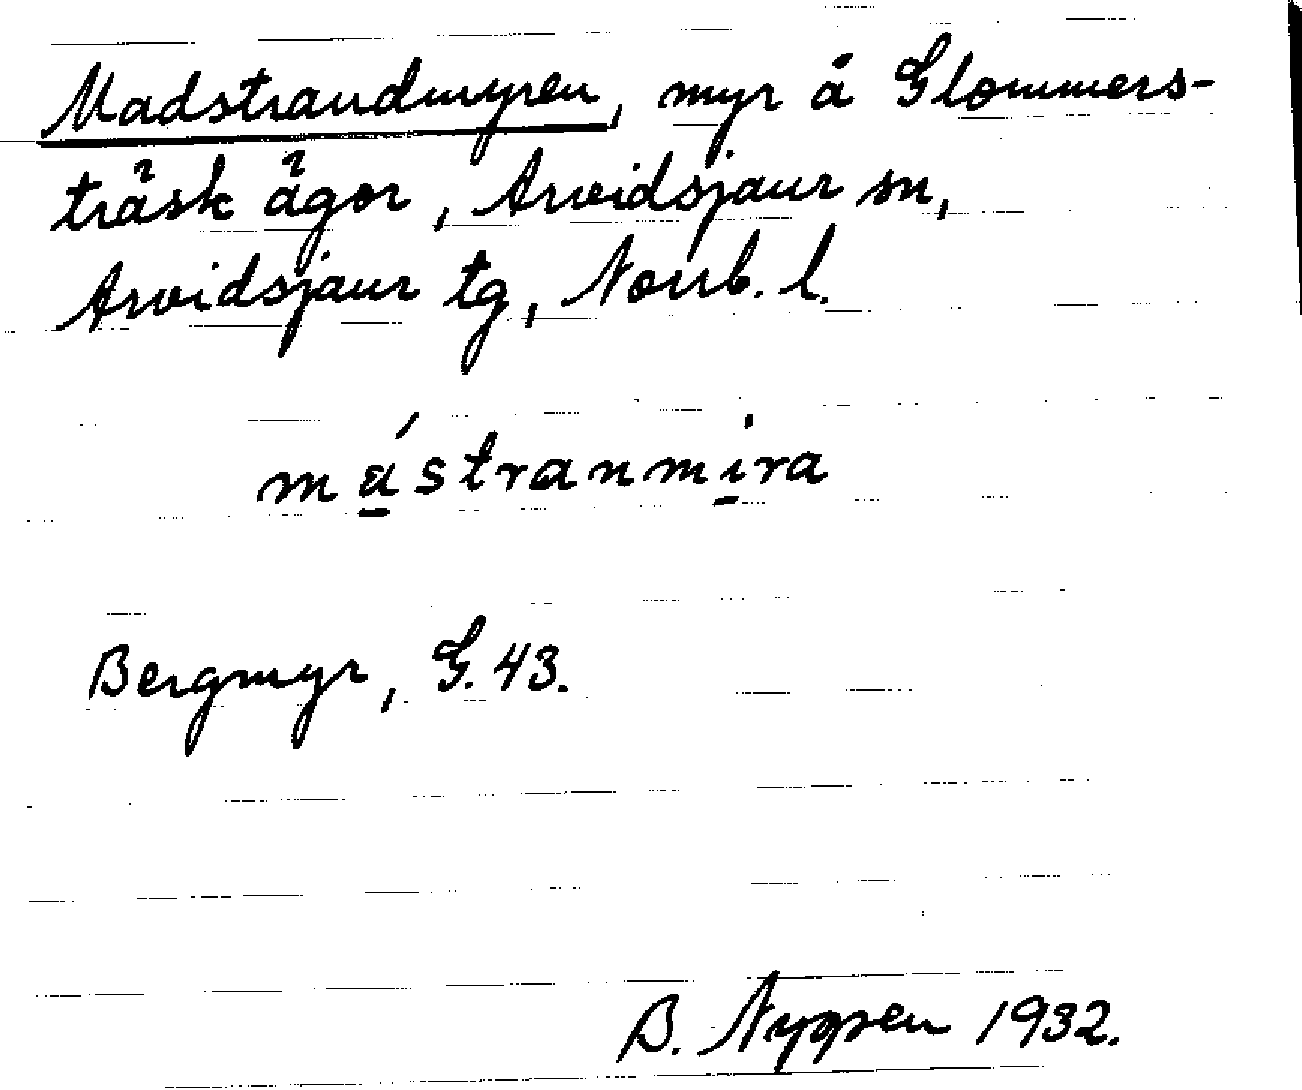 Madstrandmyren, myr å Glommers-
träsk ägor, Arvidsjaur sn,
Arvidsjaur tg, Norrb. l.
mástranmira
Bergmyr, G. 43.
B. 1932.